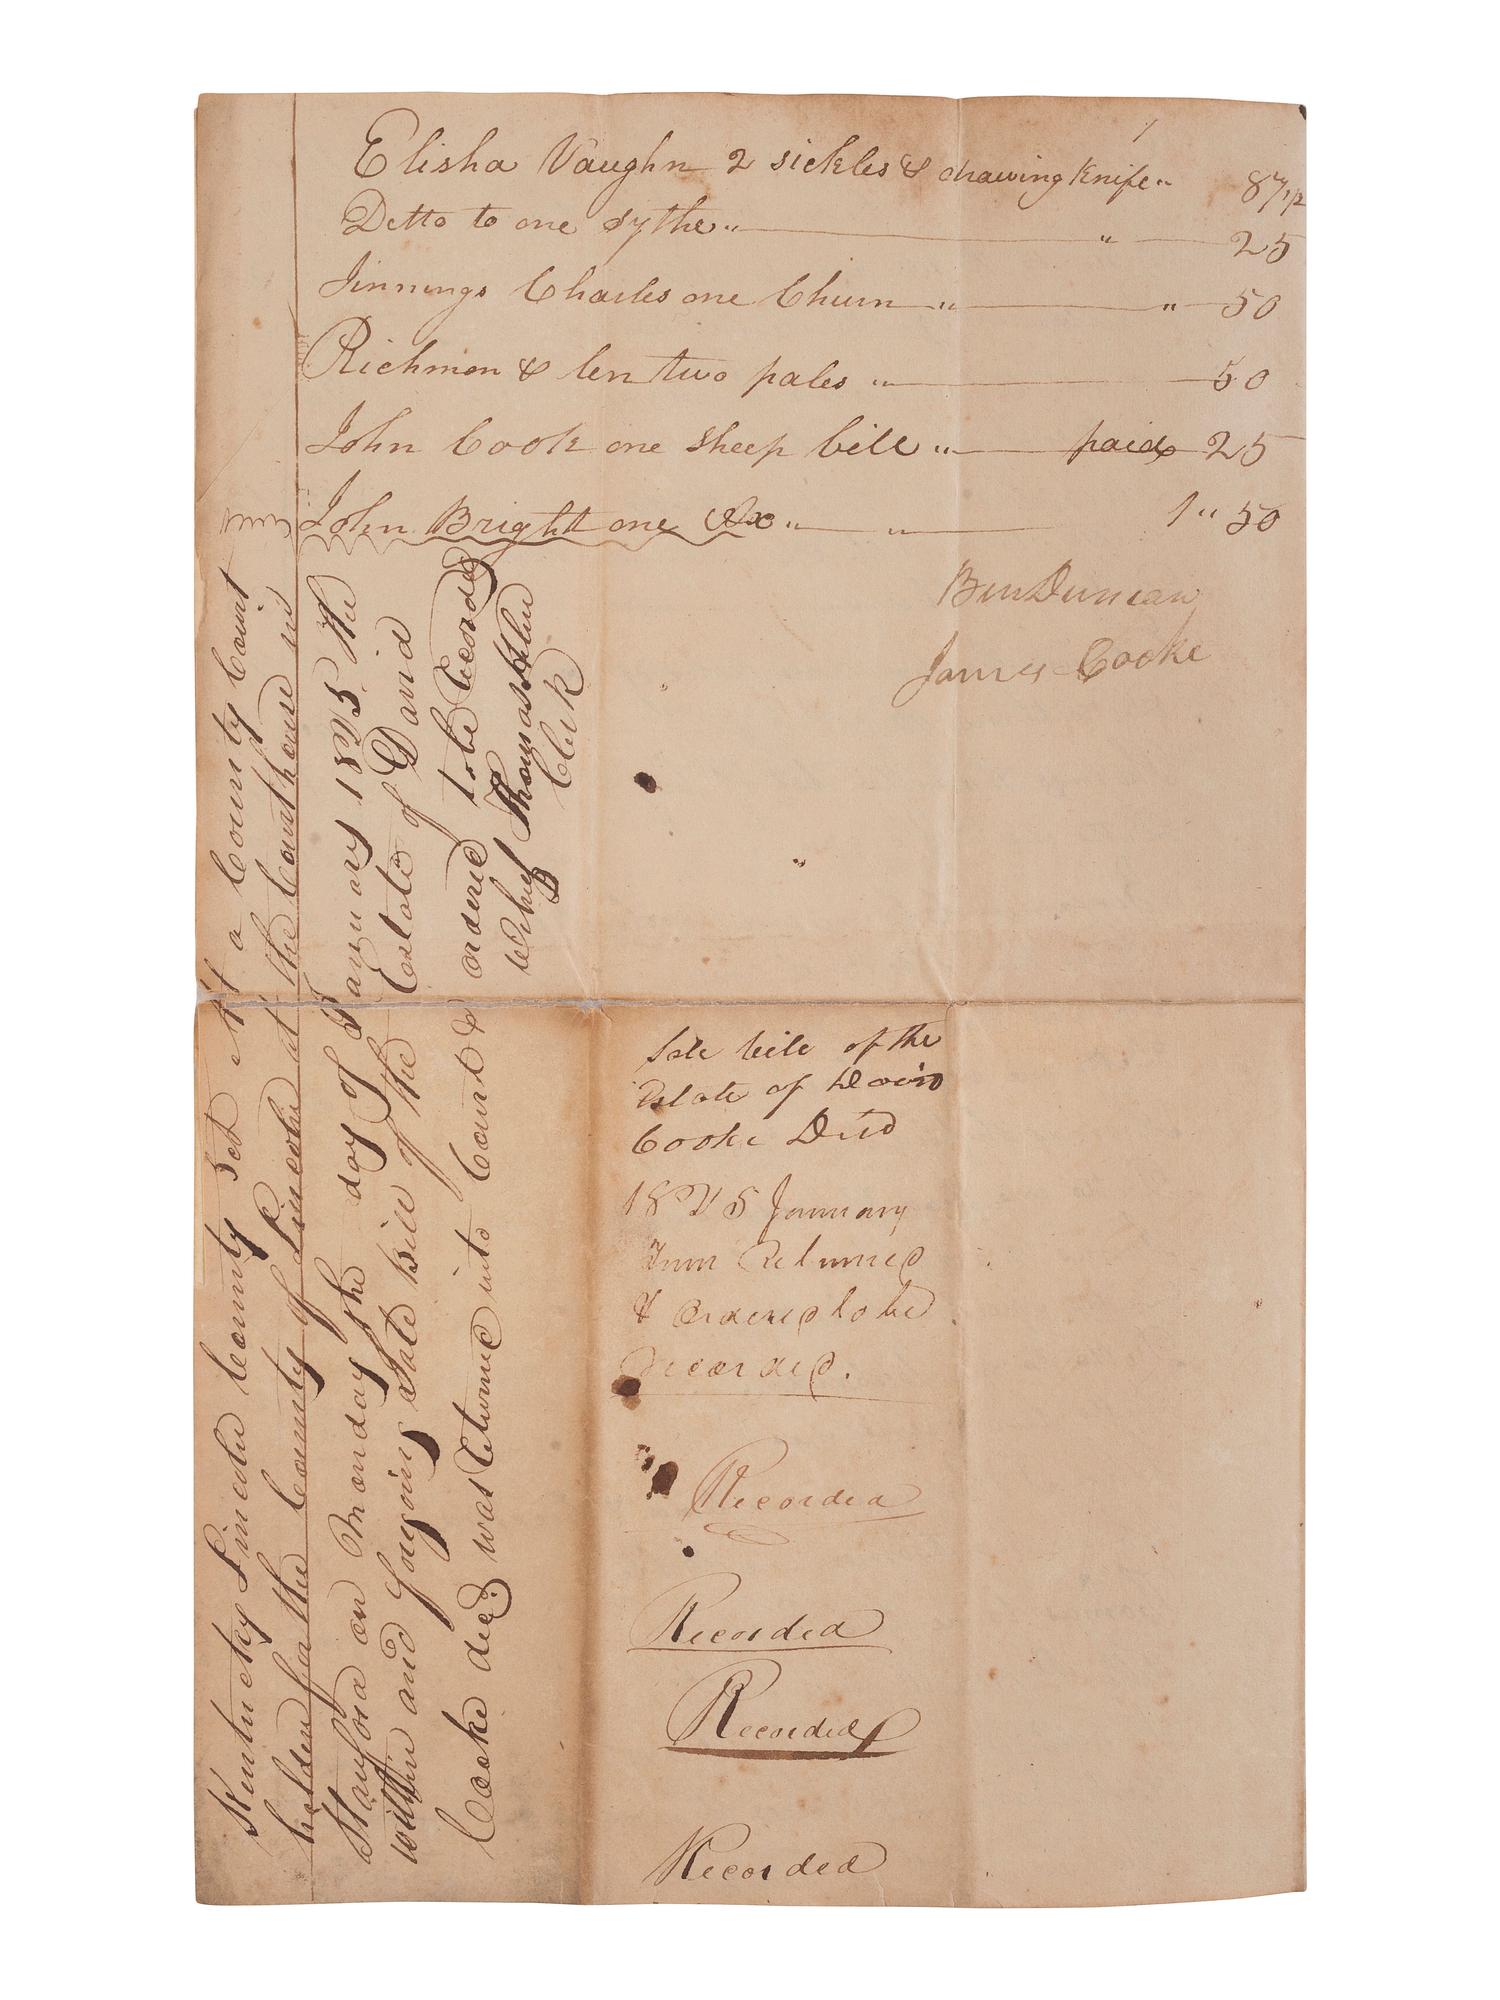 Elisha Vaughn 2 sickles & drawing Knife " 87 1/2
Detto to one sythe " " 25
Jinnings Charles one Churn " " 50
Richmon & len two pales " 50
John Cook one sheep bell " paid 25
John Bright one Ax " " 1 " 50
Ben Duncan
James Cooke
Kentucky Lincoln County Sct At a County Court
holden for the County of Lincoln at the Courthouse in
Stanford on Monday the day of January 1825 the
within and forgoing Sale Bill of the Estate of David
Cooke decd. was returned into Court & ordered to be Recorded
Thomas Helm
Clerk
Sale bill of the
Estate of David
Cooke Decd
1825 January
Term Returned
& ordered to be
recorded.
Recorded
Recorded
Recorded
Recorded